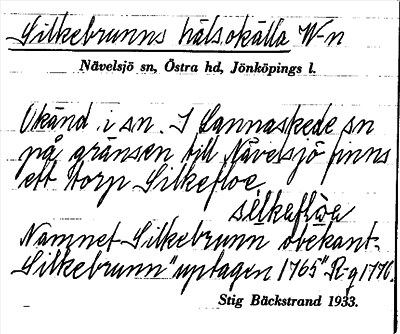 Silkebrunns hälsokälla W-n
Nävelsjö sn, Östra hd, Jönköpings l.
Okänd i sn. I Lannaskede sn
på gränsen till Nävelsjö finns
ett torp Silkefloe.
Namnet Silkebrunn obekant.
Silkebrunn" uptagen 1765" R-g 1776.
Stig Bäckstrand 1933.